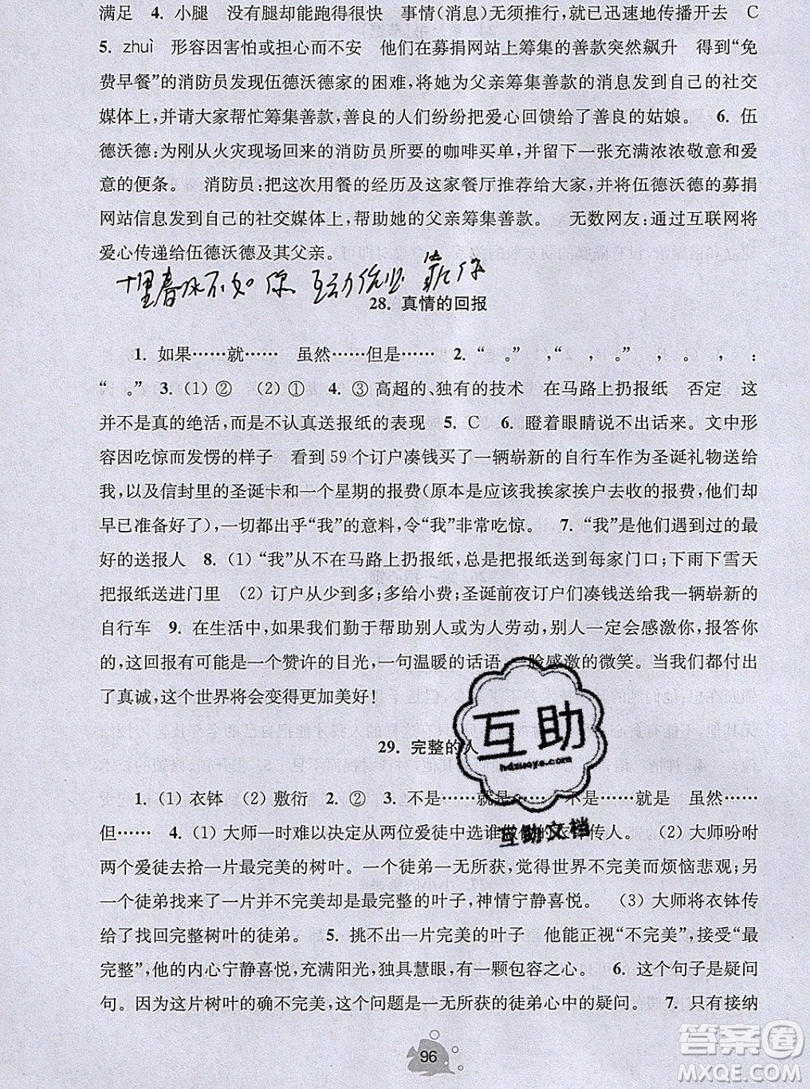 满足　4. 小腿　没有腿却能跑得很快　事情(消息)无须推行,就已迅速地传播开去　C
5. zhuì　形容因害怕或担心而不安　他们在募捐网站上筹集的善款突然飙升　得到“免
费早餐”的消防员发现伍德沃德家的困难,将她为父亲筹集善款的消息发到自己的社交
媒体上,并请大家帮忙筹集善款,善良的人们纷纷把爱心回馈给了善良的姑娘。　6. 伍
德沃德:为刚刚从火灾现场回来的消防员所要的咖啡买单,并写了一张充满浓浓敬意和爱
意的便条。　消防员:把这次用餐的经历及这家餐厅推荐给大家,并将伍德沃德的募捐
网站信息发到自己的社交媒体上,帮助她的父亲筹集善款。　无数网友:通过互联网将
爱心传递给伍德沃德及其父亲。
十里春风不如你 互动作业 靠你
28. 真情的回报
1. 如果……就……　虽然……但是……　2. “　。”　,“　,　”,　,　。　,　:
“　。”　3. (1) ②　(2) ①　4. ③ 高超的、独有的技术　在马路上扔报纸　否定　这
并不是真的绝活,而是不认真送报纸的表现　5. C　6. 瞪着眼睛说不出话来。文中形
容因吃惊而发愣的样子　看到 59 个订户凑钱买了一辆崭新的自行车作为圣诞礼物送给
我,以及信封里的圣诞卡和一个星期的报费(原本是应该我挨家挨户去收的报费,他们却
早已准备好了),一切都出乎“我”的意料,令“我”非常吃惊。　7. “我”是他们遇到过的最
好的送报人　8. (1) “我”从不在马路上扔报纸,总是把报纸送到每家门口;下雨下雪天
把报纸送进门里　(2) 订户从少到多;多给小费;圣诞前夜订户们凑钱送给我一辆崭新的
自行车　9. 在生活中,如果我们勤于帮助别人或为人劳动,别人一定会感激你,报答你
的,这回报有可能是一个赞许的目光,一句温暖的话语,一脸感激的微笑。当我们都付出
了真诚,这个世界将会变得更加美好!
29. 完整的人
1. (1) 衣钵　(2) 敷衍　2. ②　3. 不是……就是……　不是……就是　虽然……
但……　4. (1) 大师一时难以决定从两位爱徒中选谁做他的衣钵传人。　(2) 大师吩咐
两个爱徒去拾一片最完美的树叶。一个徒弟一无所获,觉得世界不完美而烦恼悲观。另
一个徒弟却捡回了他眼中最完美的叶子,神情宁静喜悦。　(3) 大师将衣钵传给了
捡回了完整树叶的徒弟。　5. 挑不出一片完美的叶子　他能正视“不完美”,接受“最
完整”,他的内心宁静喜悦,充满阳光,独具慧眼,有一颗完整的心。　6. 这个句子是疑问
句。因为这片树叶的确不完美,这个问题是一无所获的徒弟心中的疑问。　7. 只有接纳
互助
hdzuoye.com
互助文档
96
答案圈
MXQE.COM